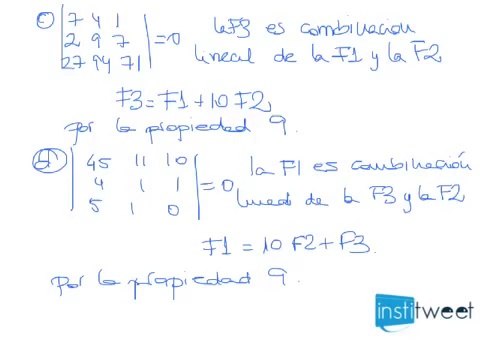 c) | 7 4 1 | la F3 es combinación
| 2 9 7 | = 0 lineal de la F1 y la F2
| 27 94 71 |
F3 = F1 + 10 F2,
por la propiedad 9.
d) | 45 11 10 | la F1 es combinación
| 4 1 1 | = 0 lineal de la F3 y la F2
| 5 1 0 |
F1 = 10 F2 + F3.
Por la propiedad 9.
institweet